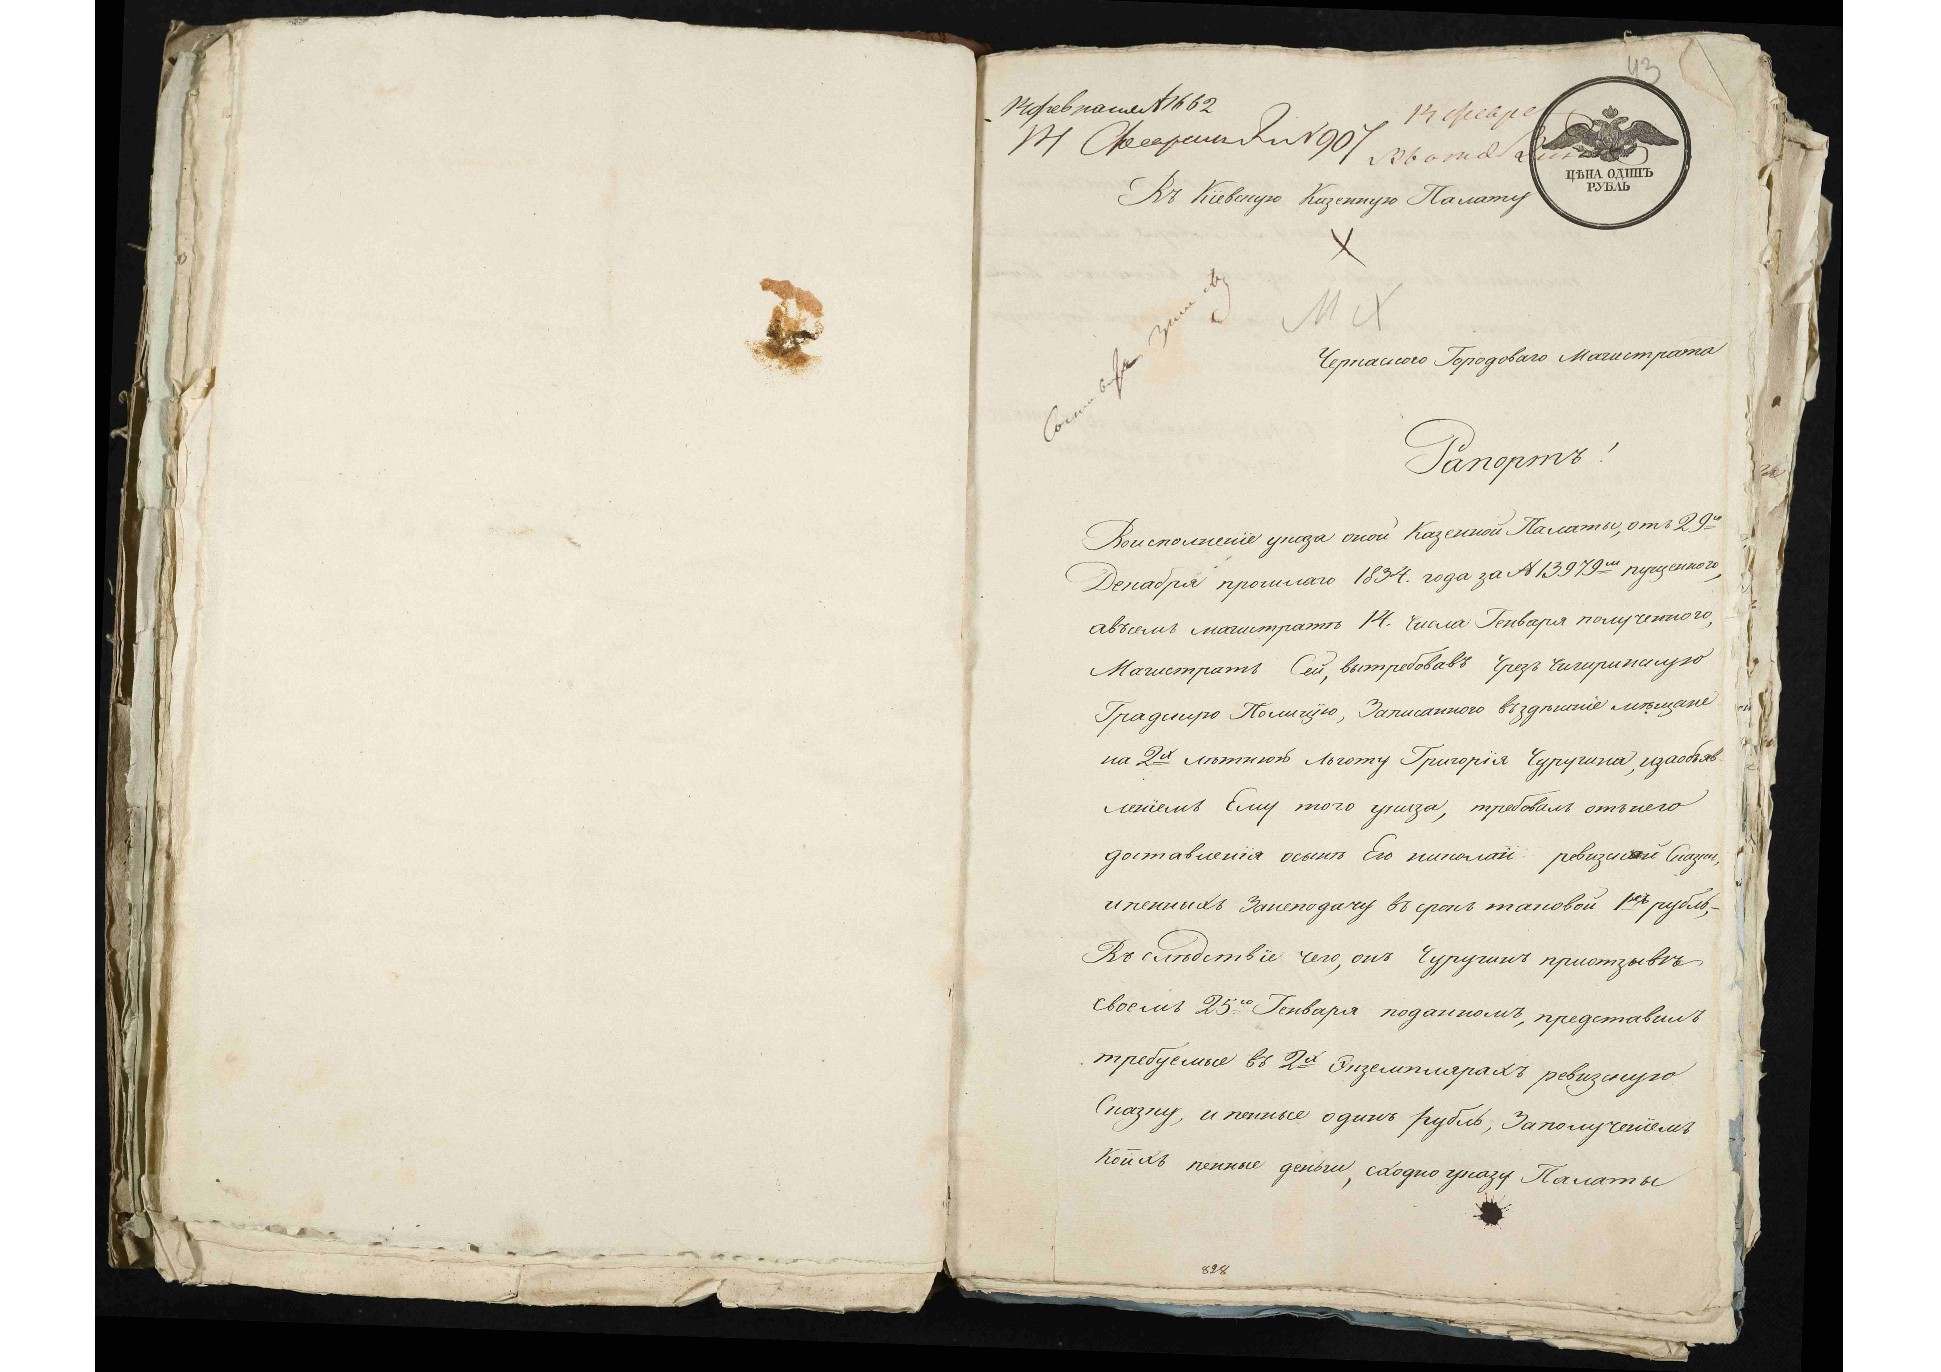 43
№ 1662
14 февр
№ 907
ЦѢНА ОДИНЪ
РУБЛЬ
Въ Кіевскую Казенную Палату
Черкаского Городоваго Магистрата
Рапортъ!
Воисполненіе указа оной Казенной Палаты, отъ 29го
Декабря прошлаго 1834. года за № 13979мъ пущенного,
авъсемъ магистратѣ 14. числа Генваря полученного,
Магистратъ Сей, вытребовавъ чрезъ Чигиринскую
Градскую Полицію, Записанного въздѣшніе мѣщане
на 2х лѣтнюю льготу Григорія Чуругина, изаобъяв-
леніемъ Ему того указа, требовалъ отънего
доставленія осынѣ Его николаи ревизской Сказки,
ипенныхъ Занеподачу въ срокъ таковой рубль,-
Въ слѣдствіе чего, онъ Чуругинъ приотзывѣ
своемъ 25го Генваря поданномъ, представилъ
требуемые въ 2х Экземплярахъ ревизскую
Сказку, и пенные одинъ рубль, Заполученіемъ
Коихъ пенные деньги, сходно указу Палаты
828